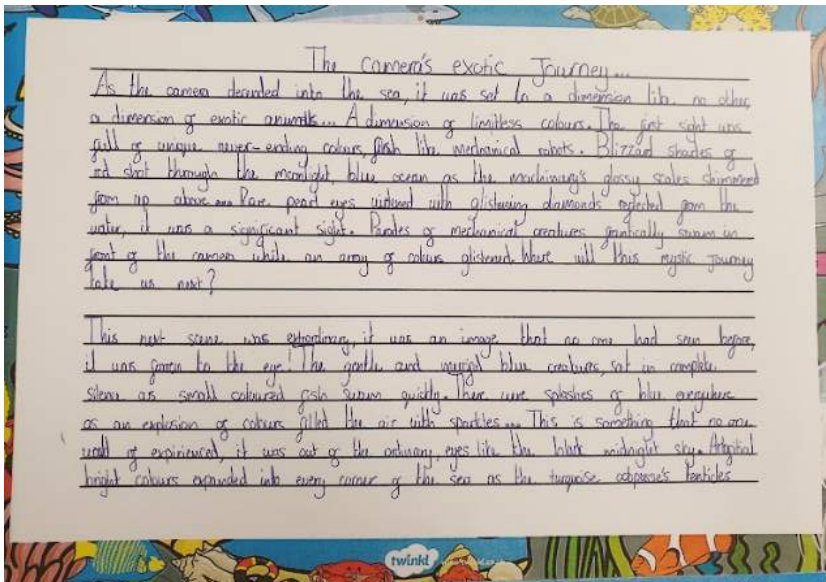 The camera's exotic Journey...
As the camera decended into the sea, it was set in a dimension like no other,
a dimension of exotic animals... A dimension of limitless colours. The first sight was
full of unique never-ending colours, fish like mechanical robots. Blizzard shades of
red shot through the moonlight, blue ocean as the machinary's glossy scales shimmered
from up above... Rare pearl eyes widened with glistening diamonds reflected from the
water, it was a significant sight. Parades of mechanical creatures frantically swam in
front of the camera while an array of colours glistened. Where will this mystic Journey
take us next?
This next scene was extraordinary, it was an image that no one had seen before,
it was foreign to the eye! The gentle and blue creatures, sat in complete
silence as small coloured fish swum quickly. There were splashes of blue everywhere
as an explosion of colours filled the air with sparkles... This is something that no one
would of expirienced, it was out of the ordinary, eyes like the blak midnight sky. Artifitial
bright colours expanded into every corner of the sea as the turquise octopuse's tenticles
twinkl